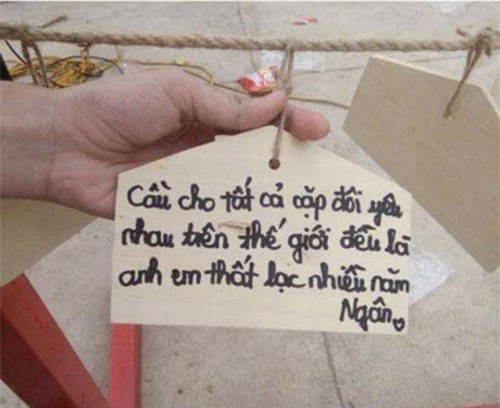 Cầu cho tất cả cặp đôi yêu
nhau trên thế giới đều là
anh em thất lạc nhiều năm
Ngân